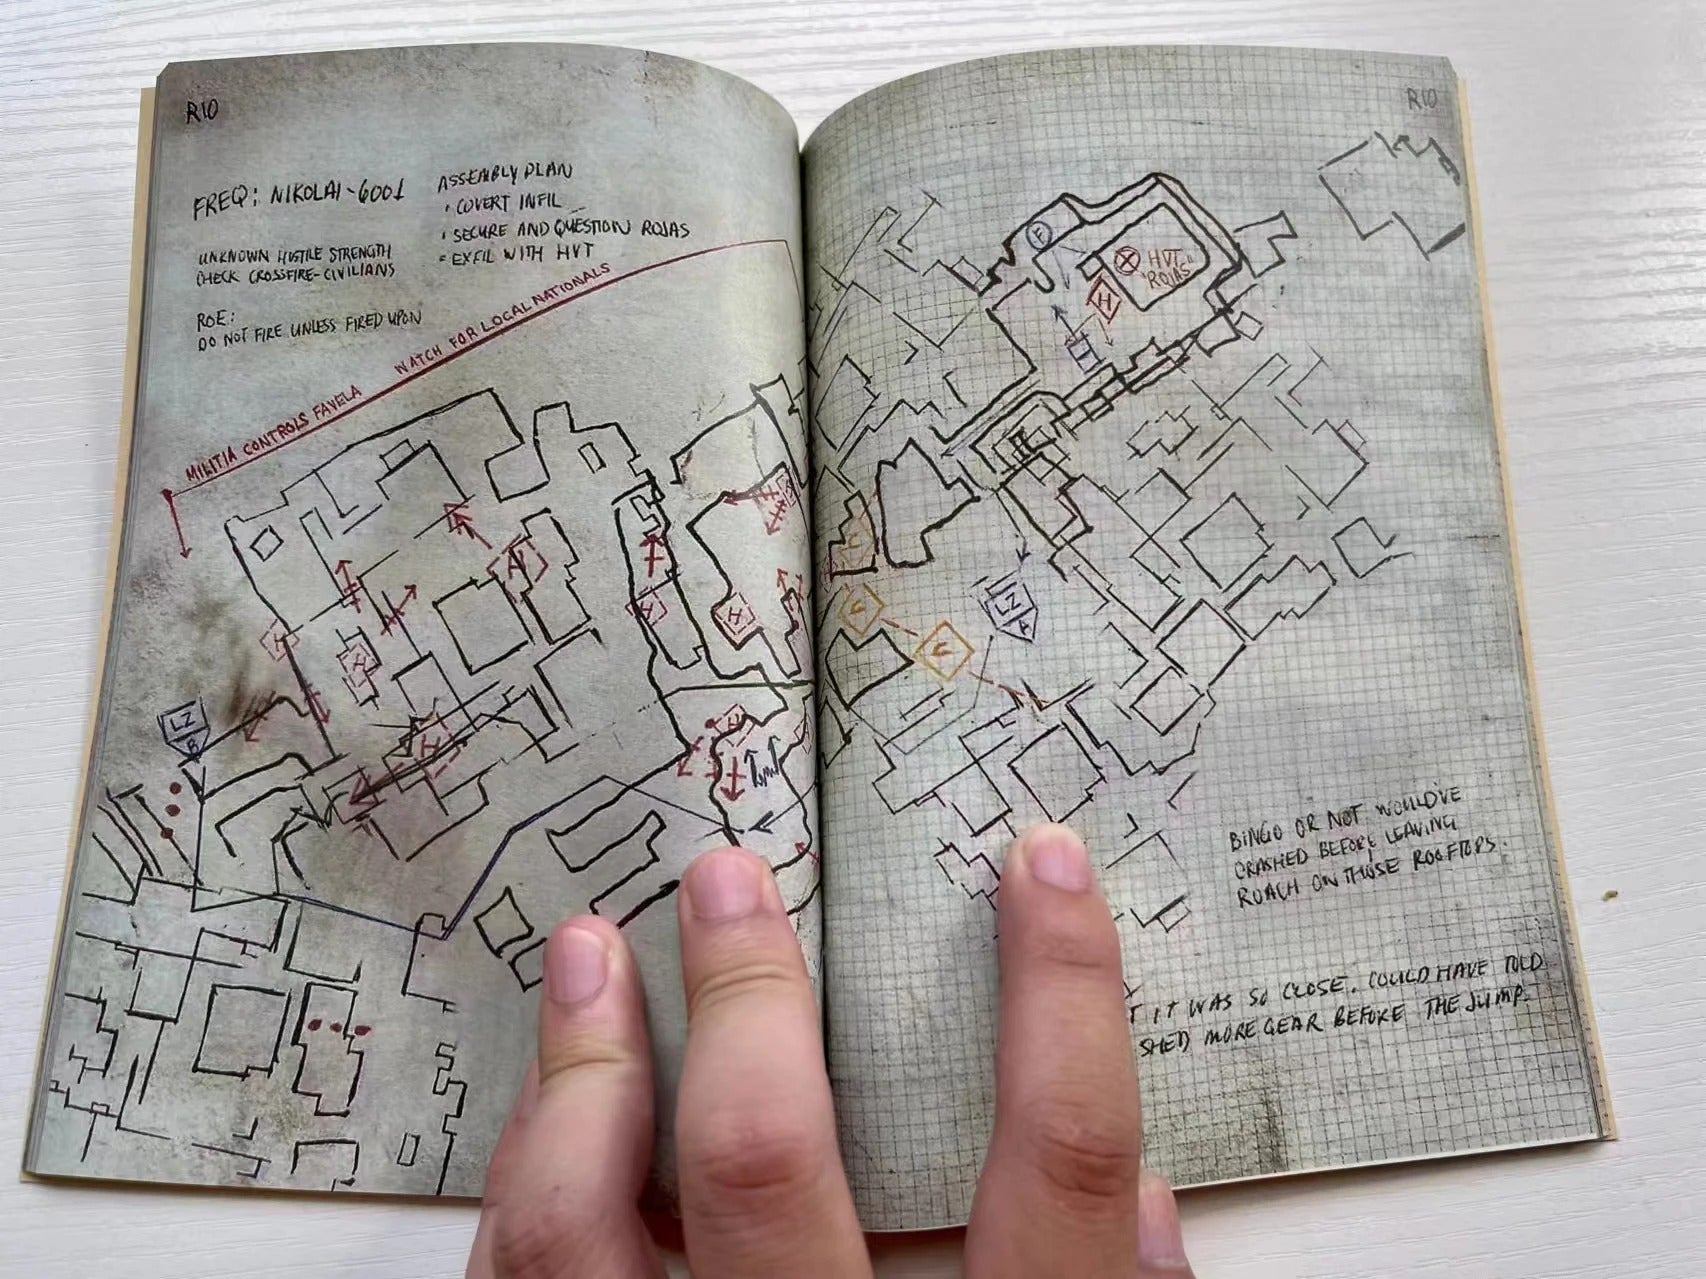 RIO
FREQ: NIKOLAI-6001
UNKNOWN HOSTILE STRENGTH
CHECK CROSSFIRE-CIVILIANS
ROE:
DO NOT FIRE UNLESS FIRED UPON
ASSEMBLY PLAN
• COVERT INFIL
• SECURE AND QUESTION ROJAS
• EXFIL WITH HVT
MILITIA CONTROLS FAVELA WATCH FOR LOCAL NATIONALS
H
H
H
H
H
H
H
LZ
B
RIO
F
HVT
"ROJAS"
H
C
C
C
LZ
A
BINGO OR NOT WOULD'VE
CRASHED BEFORE LEAVING
ROACH ON THOSE ROOFTOPS.
IT WAS SO CLOSE. COULD HAVE TOLD
SHED MORE GEAR BEFORE THE JUMP.